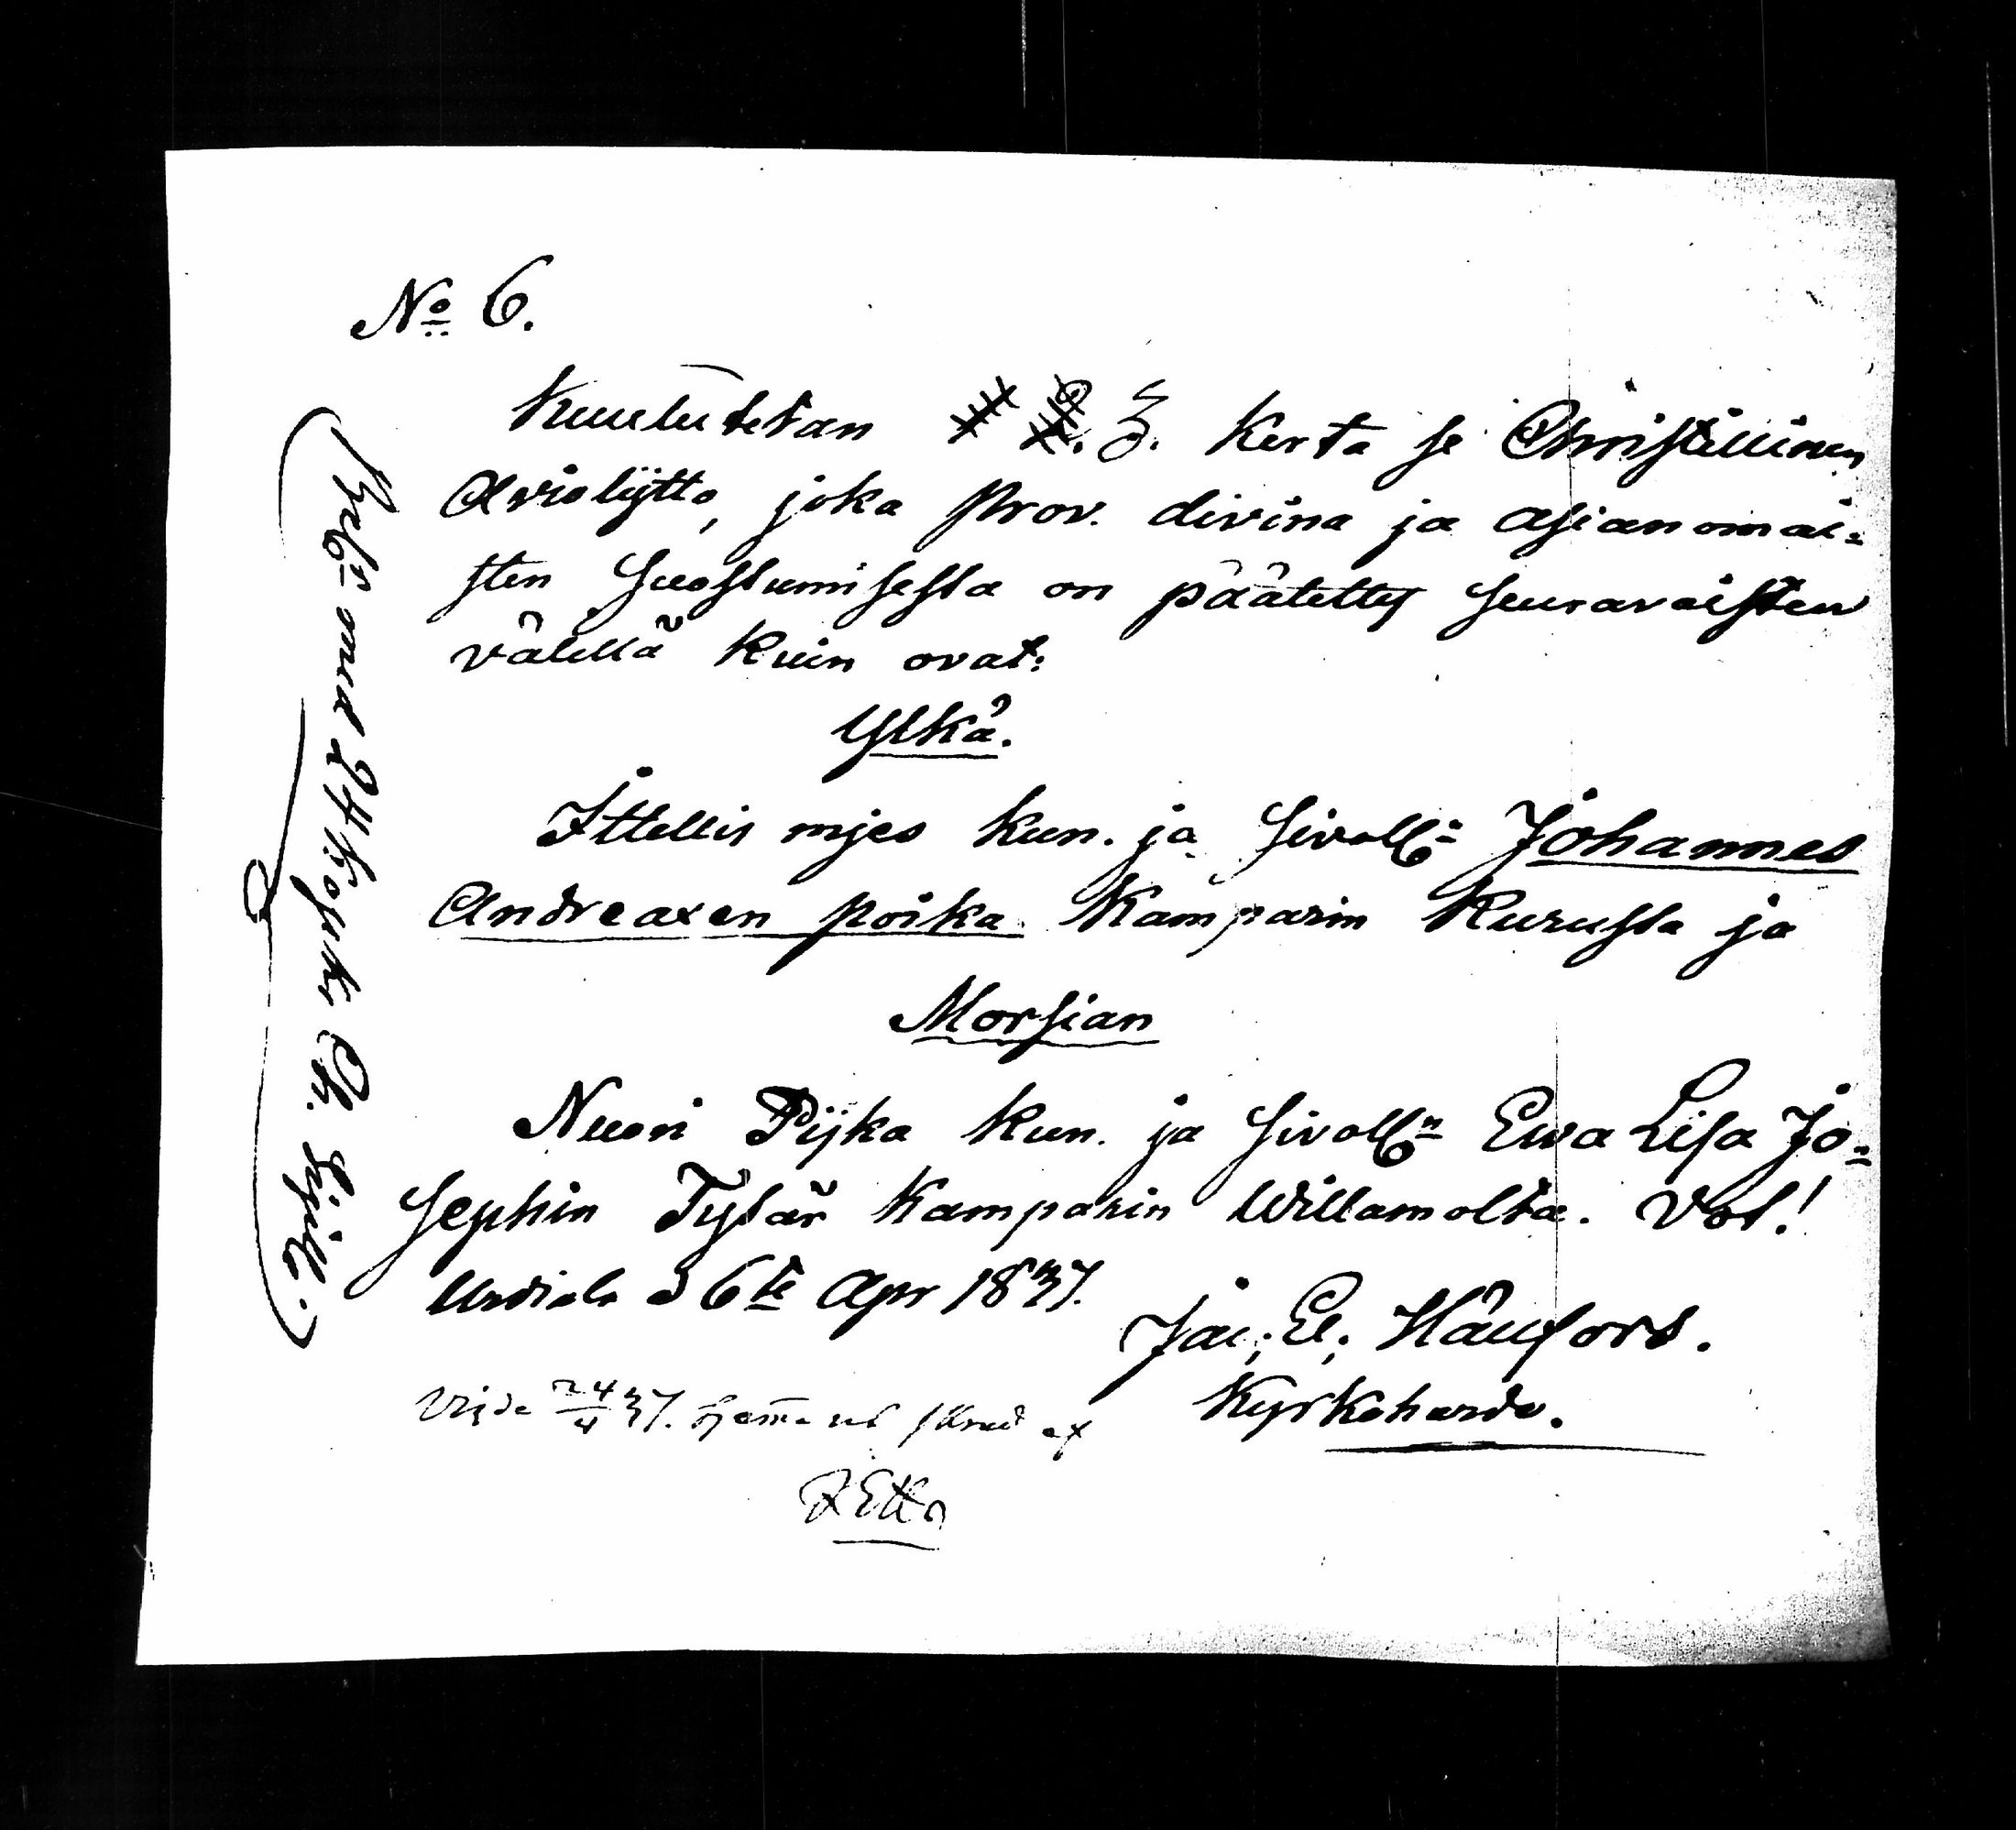 No 6.
Kuulutetan 1 2. 3. Kerta se Christillinen
Avioliitto, joka prov. divina ja asianomai=
sten suostumisessa on päätetty seuravaisten
välillä kuin ovat:
Ylkä.
Ittellis mjes kun. ja sivoll: Johannes
Andreaxen poika Kamparin Kurussa ja
Morsian
Nuori Pijka kun. ja sivolln Ewa Lisa Jo=
sephin Tytär Kamparin Willamolta. Vot!
Urdiala d 6te Apr 1837.
Jac; El;
Kyrkoherde.
Vigde 24/4 37. af
med Ch.